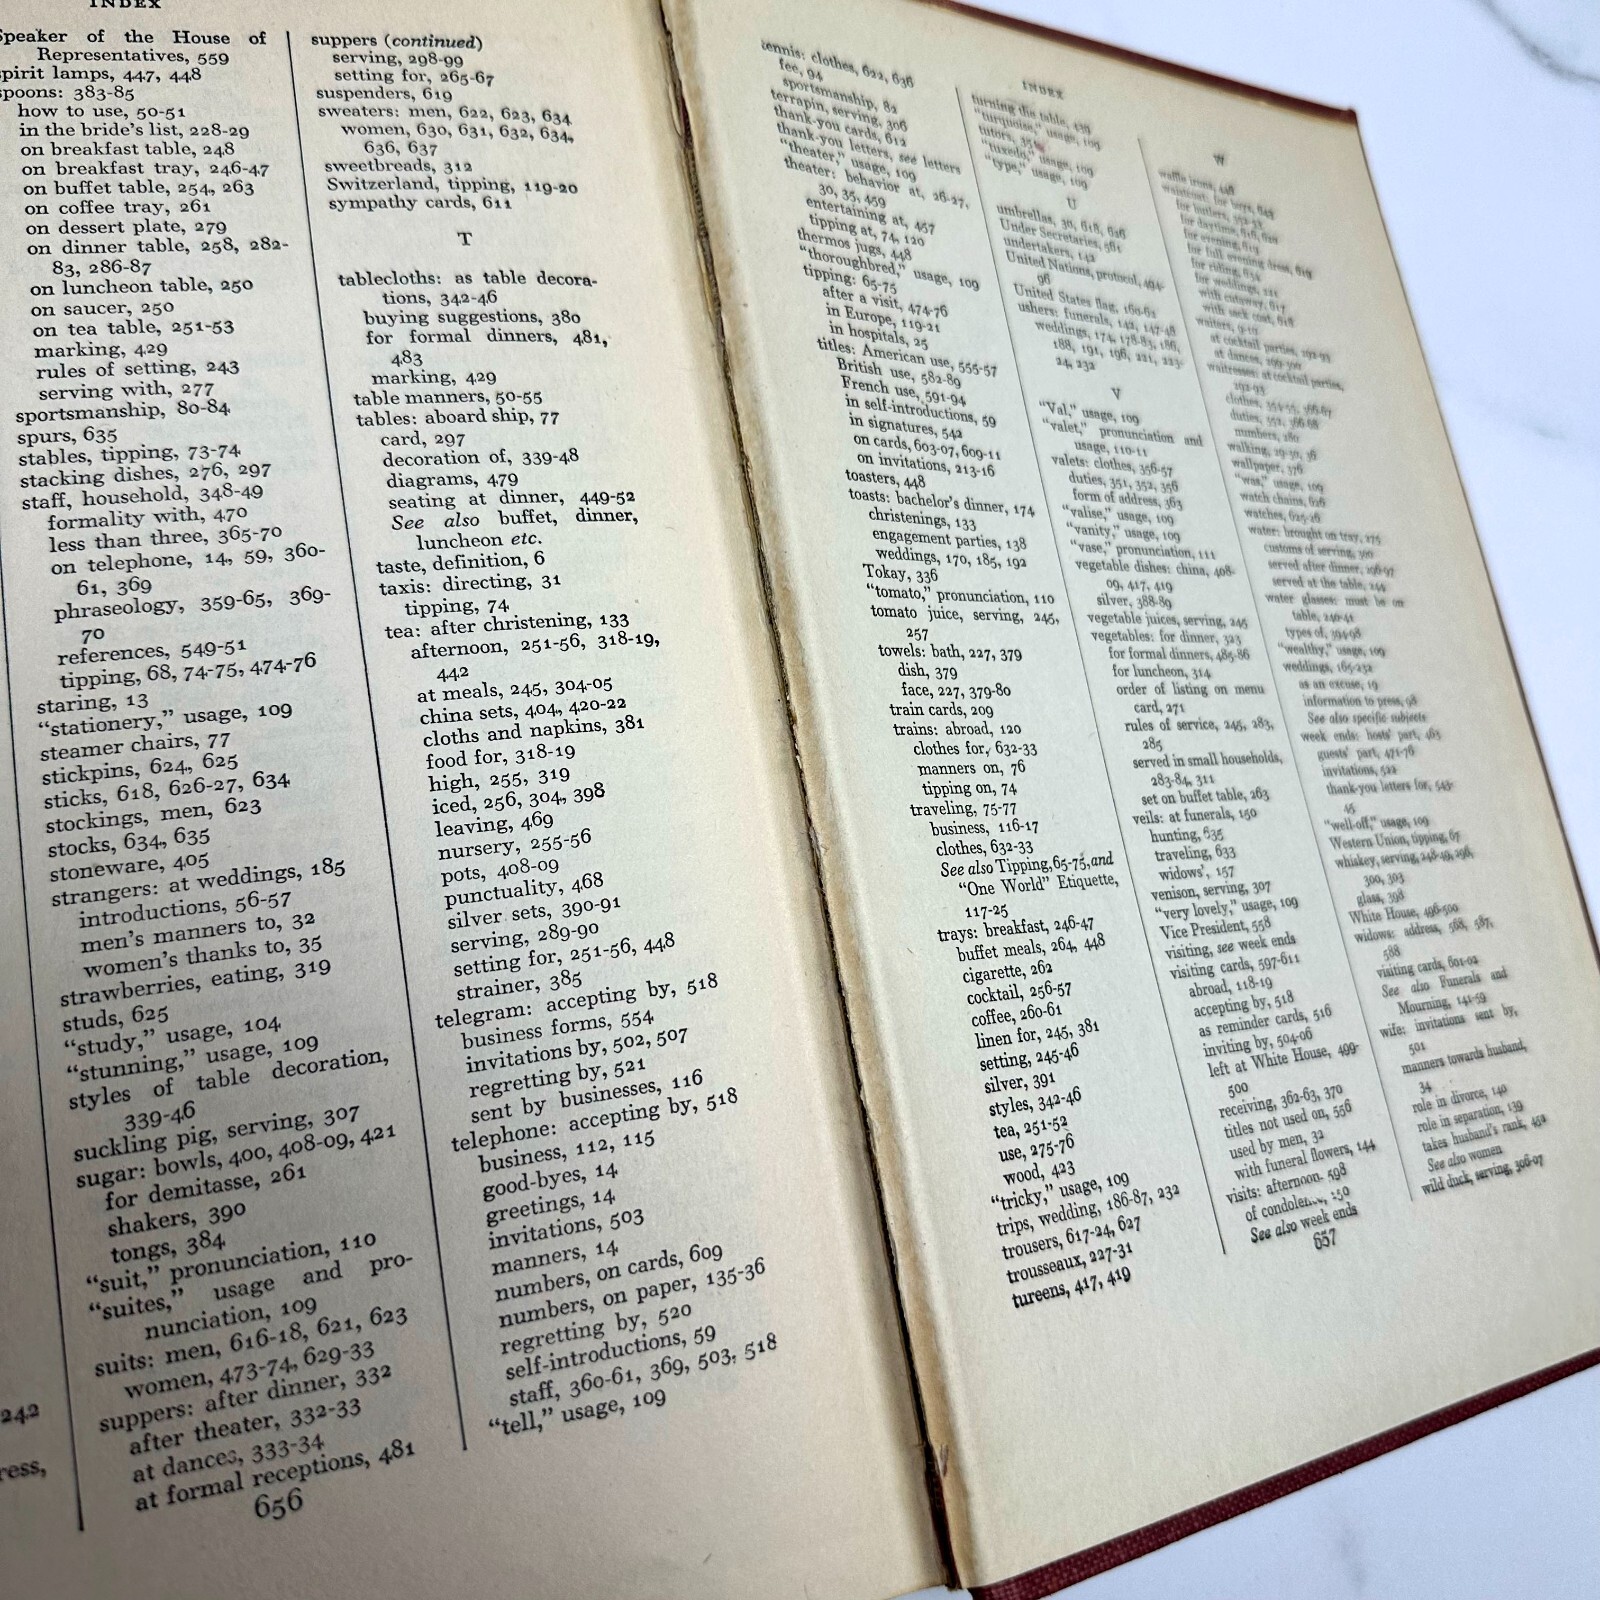 INDEX
Speaker of the House of
Representatives, 559
spirit lamps, 447, 448
spoons: 383-85
how to use, 50-51
in the bride's list, 228-29
on breakfast table, 248
on breakfast tray, 246-47
on buffet table, 254, 263
on coffee tray, 261
on dessert plate, 279
on dinner table, 258, 282-
83, 286-87
on luncheon table, 250
on saucer, 250
on tea table, 251-53
marking, 429
rules of setting, 243
serving with, 277
sportsmanship, 80-84
spurs, 635
stables, tipping, 73-74
stacking dishes, 276, 297
staff, household, 348-49
formality with, 470
less than three, 365-70
on telephone, 14, 59, 360-
61, 369
phraseology, 359-65, 369-
70
references, 549-51
tipping, 68, 74-75, 474-76
staring, 13
"stationery," usage, 109
steamer chairs, 77
stickpins, 624, 625
sticks, 618, 626-27, 634
stockings, men, 623
stocks, 634, 635
stoneware, 405
strangers: at weddings, 185
introductions, 56-57
men's manners to, 32
women's thanks to, 35
strawberries, eating, 319
studs, 625
"study," usage, 104
"stunning," usage, 109
styles of table decoration,
339-46
suckling pig, serving, 307
sugar: bowls, 400, 408-09, 421
for demitasse, 261
shakers, 390
tongs, 384
"suit," pronunciation, 110
"suites," usage and pro-
nunciation, 109
suits: men, 616-18, 621, 623
women, 473-74, 629-33
suppers: after dinner, 332
after theater, 332-33
at dances, 333-34
at formal receptions, 481
242
ress,
656
suppers (continued)
serving, 298-99
setting for, 265-67
suspenders, 619
sweaters: men, 622, 623, 634
women, 630, 631, 632, 634,
636, 637
sweetbreads, 312
Switzerland, tipping, 119-20
sympathy cards, 611
T
tablecloths: as table decora-
tions, 342-46
buying suggestions, 380
for formal dinners, 481,
483
marking, 429
table manners, 50-55
tables: aboard ship, 77
card, 297
decoration of, 339-48
diagrams, 479
seating at dinner, 449-52
See also buffet, dinner,
luncheon etc.
taste, definition, 6
taxis: directing, 31
tipping, 74
tea: after christening, 133
afternoon, 251-56, 318-19,
442
at meals, 245, 304-05
china sets, 404, 420-22
cloths and napkins, 381
food for, 318-19
high, 255, 319
iced, 256, 304, 398
leaving, 469
nursery, 255-56
pots, 408-09
punctuality, 468
silver sets, 390-91
serving, 289-90
setting for, 251-56, 448
strainer, 385
telegram: accepting by, 518
business forms, 554
invitations by, 502, 507
regretting by, 521
sent by businesses, 116
telephone: accepting by, 518
business, 112, 115
good-byes, 14
greetings, 14
invitations, 503
manners, 14
numbers, on cards, 609
numbers, on paper, 135-36
regretting by, 520
self-introductions, 59
staff, 360-61, 369, 503, 518
"tell," usage, 109
INDEX
tennis: clothes, 622, 636
fee, 94
sportsmanship, 82
terrapin, serving, 306
thank-you cards, 612
thank-you letters, see letters
"theater," usage, 109
theater: behavior at, 26-27,
30, 35, 459
entertaining at, 457
tipping at, 74, 120
thermos jugs, 448
"thoroughbred," usage, 109
tipping: 65-75
after a visit, 474-76
in Europe, 119-21
in hospitals, 25
titles: American use, 555-57
British use, 582-89
French use, 591-94
in self-introductions, 59
in signatures, 542
on cards, 603-07, 609-11
on invitations, 213-16
toasters, 448
toasts: bachelor's dinner, 174
christenings, 133
engagement parties, 138
weddings, 170, 185, 192
Tokay, 336
"tomato," pronunciation, 110
tomato juice, serving, 245,
257
towels: bath, 227, 379
dish, 379
face, 227, 379-80
train cards, 209
trains: abroad, 120
clothes for, 632-33
manners on, 76
tipping on, 74
traveling, 75-77
business, 116-17
clothes, 632-33
See also Tipping, 65-75, and
"One World" Etiquette,
117-25
trays: breakfast, 246-47
buffet meals, 264, 448
cigarette, 262
cocktail, 256-57
coffee, 260-61
linen for, 245, 381
setting, 245-46
silver, 391
styles, 342-46
tea, 251-52
use, 275-76
wood, 423
"tricky," usage, 109
trips, wedding, 186-87, 232
trousers, 617-24, 627
trousseaux, 227-31
tureens, 417, 419
turning the table, 439
"turquoise," usage, 109
tutors,
"tuxedo," usage, 109
"type," usage, 109
U
umbrellas, 30, 618, 626
Under Secretaries, 561
undertakers, 142
United Nations, protocol, 494-
96
United States flag, 160-62
ushers: funerals, 142, 147-48
weddings, 174, 178-83, 186,
188, 191, 196, 221, 223-
24, 232
V
"Val," usage, 109
"valet," pronunciation and
usage, 110-11
valets: clothes, 356-57
duties, 351, 352, 356
form of address, 363
"valise," usage, 109
"vanity," usage, 109
"vase," pronunciation, 111
vegetable dishes: china, 408-
09, 417, 419
silver, 388-89
vegetable juices, serving, 245
vegetables: for dinner, 323
for formal dinners, 485-86
for luncheon, 314
order of listing on menu
card, 271
rules of service, 245, 283,
285
served in small households,
283-84, 311
set on buffet table, 263
veils: at funerals, 150
hunting, 635
traveling, 633
widows', 157
venison, serving, 307
"very lovely," usage, 109
Vice President, 558
visiting, see week ends
visiting cards, 597-611
abroad, 118-19
accepting by, 518
as reminder cards, 516
inviting by, 504-06
left at White House, 499-
500
receiving, 362-63, 370
titles not used on, 556
used by men, 32
with funeral flowers, 144
visits: afternoon, 598
of condolence, 150
See also week ends
657
W
waffle irons, 448
waistcoat: for boys,
for butlers,
for daytime,
for evening,
for full evening dress, 619
for riding,
for weddings,
with cutaway, 617
with sack coat, 618
waiters,
at cocktail parties, 292-93
at dances,
waitresses: at cocktail parties,
292-93
clothes,
duties,
numbers, 280
walking, 29-30, 36
wallpaper, 376
"was," usage, 109
watch chains, 626
watches, 625-26
water: brought on tray, 275
customs of serving,
served after dinner, 296-97
served at the table, 244
water glasses: must be on
table, 240-41
types of, 394-98
"wealthy," usage, 109
weddings, 165-232
as an excuse, 19
information to press, 98
See also specific subjects
week ends: hosts' part, 463
guests' part, 471-76
invitations, 522
thank-you letters for, 543-
45
"well-off," usage, 109
Western Union, tipping, 67
whiskey, serving, 248-49, 296,
300, 303
glass, 398
White House, 496-500
widows: address, 568, 587,
588
visiting cards, 601-02
See also Funerals and
Mourning, 141-59
wife: invitations sent by,
501
manners towards husband,
34
role in divorce, 140
role in separation, 139
takes husband's rank, 452
See also women
wild duck, serving, 306-07